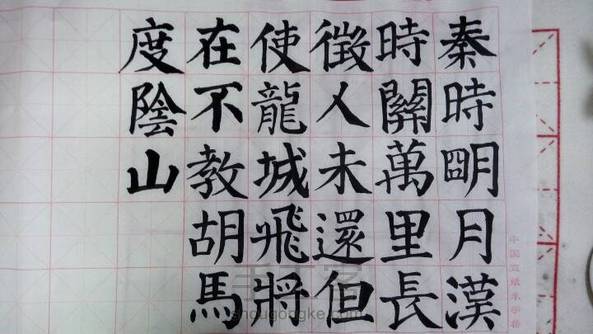 秦時明月漢
時關萬里長
徵人未還但
使龍城飛將
在不教胡馬
度陰山
手工客
shougongke.com